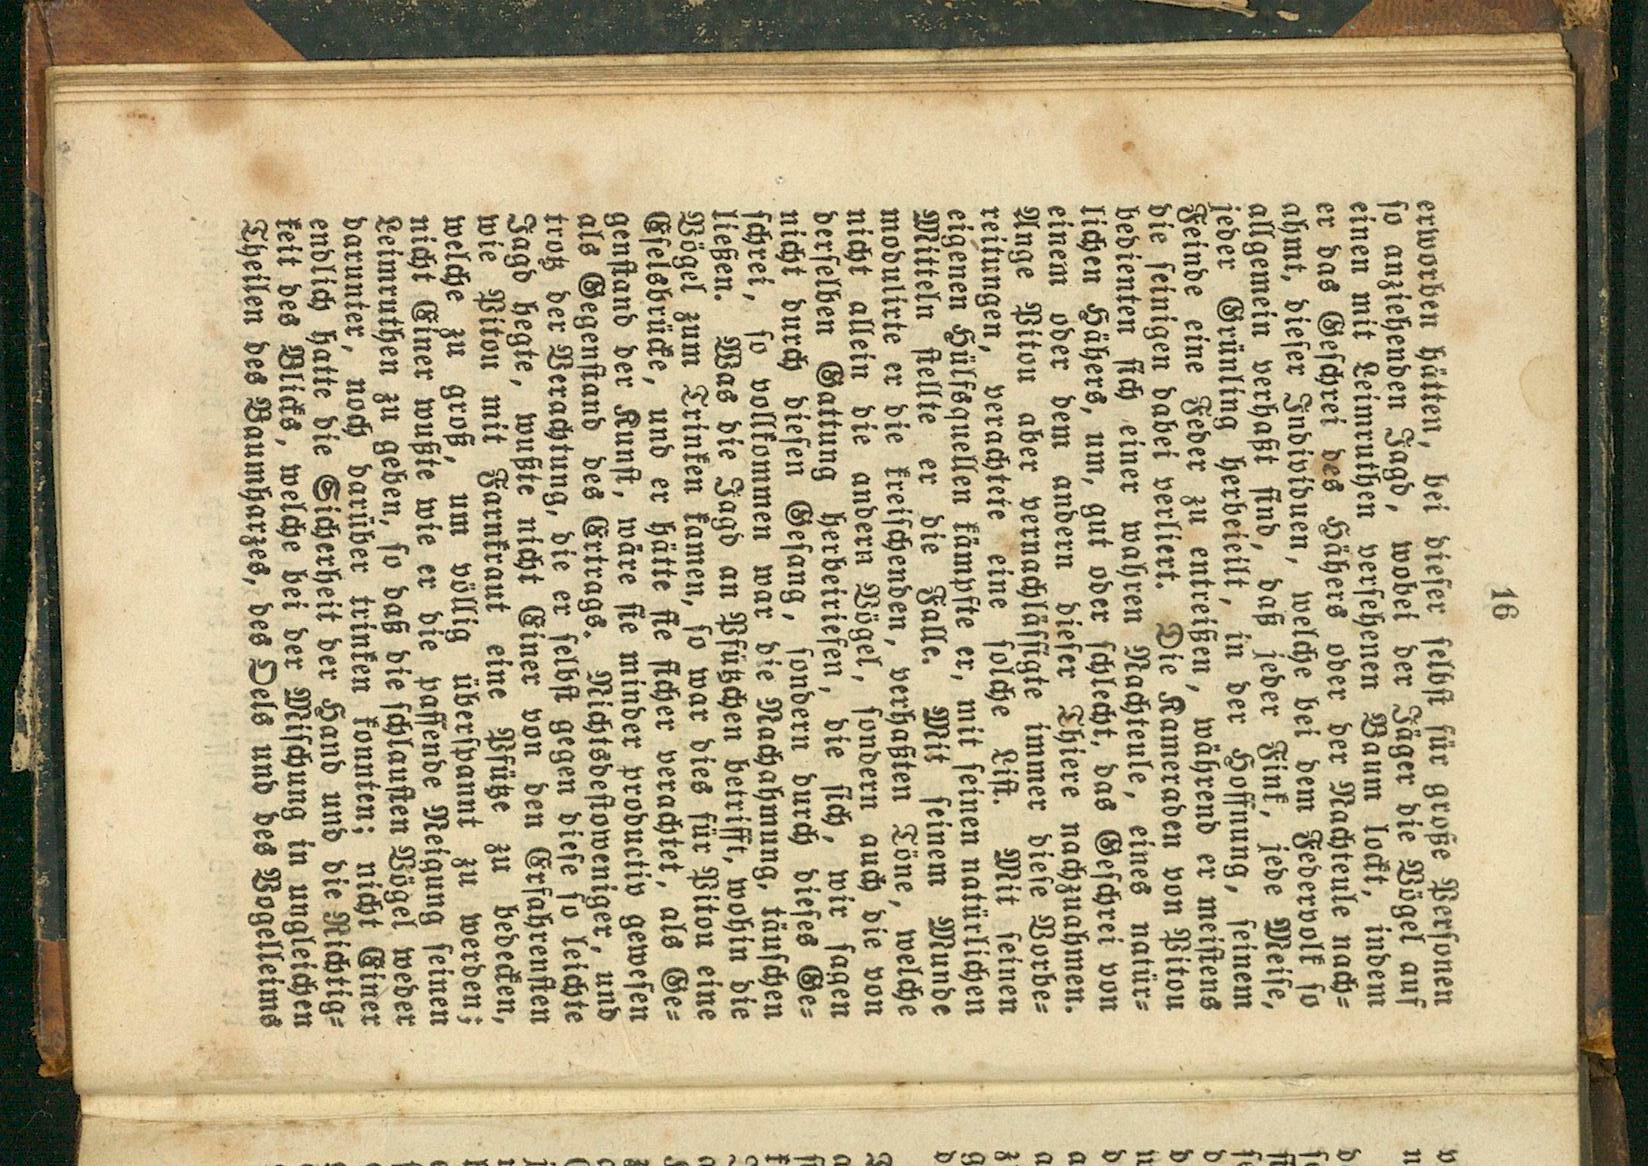 16
erworben hätten, bei dieser selbst für große Personen
so anziehenden Jagd, wobei der Jäger die Vögel auf
einen mit Leimruthen versehenen Baum lockt, indem
er das Geschrei des Hähers oder der Nachteule nach-
ahmt, dieser Individuen, welche bei dem Federvolk so
allgemein verhaßt sind, daß jeder Fink, jede Meise,
jeder Grünling herbeieilt, in der Hoffnung, seinem
Feinde eine Feder zu entreißen, während er meistens
die seinigen dabei verliert. Die Kameraden von Pitou
bedienten sich einer wahren Nachteule, eines natür-
lichen Hähers, um, gut oder schlecht, das Geschrei von
einem oder dem andern dieser Thiere nachzuahmen.
Ange Pitou aber vernachläßigte immer diese Vorbe-
reitungen, verachtete eine solche List. Mit seinen
eigenen Hülfsquellen kämpfte er, mit seinen natürlichen
Mitteln stellte er die Falle. Mit seinem Munde
modulirte er die kreischenden, verhaßten Töne, welche
nicht allein die andern Vögel, sondern auch die von
derselben Gattung herbeiriefen, die sich, wir sagen
nicht durch diesen Gesang, sondern durch dieses Ge-
schrei, so vollkommen war die Nachahmung, täuschen
ließen. Was die Jagd an Pfützchen betrifft, wohin die
Vögel zum Trinken kamen, so war dies für Pitou eine
Eselsbrücke, und er hätte sie sicher verachtet, als Ge-
genstand der Kunst, wäre sie minder productiv gewesen
als Gegenstand des Ertrags. Nichtsdestoweniger, und
trotz der Verachtung, die er selbst gegen diese so leichte
Jagd hegte, wußte nicht Einer von den Erfahrensten
wie Pitou mit Farnkraut eine Pfütze zu bedecken,
welche zu groß, um völlig überspannt zu werden;
nicht Einer wußte wie er die passende Neigung seinen
Leimruthen zu geben, so daß die schlausten Vögel weder
darunter, noch darüber trinken konnten; nicht Einer
endlich hatte die Sicherheit der Hand und die Richtig-
keit des Blicks, welche bei der Mischung in ungleichen
Theilen des Baumharzes, des Oels und des Vogelleims